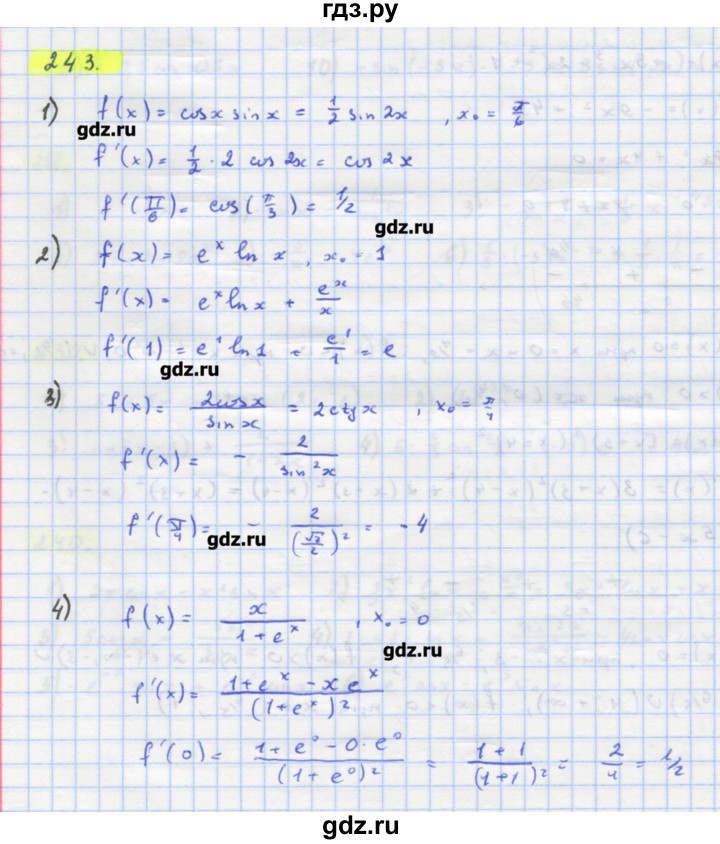 гдз.ру
243.
1) f(x) = cosx sinx = 1/2 sin 2x , x₀ = π/6
gdz.ru
f'(x) = 1/2 · 2 cos 2x = cos 2x
f'(π/6) = cos(π/3) = 1/2
gdz.ru
2) f(x) = eˣ ln x , x₀ = 1
f'(x) = eˣ ln x + eˣ/x
f'(1) = e¹ ln 1 = e¹/1 = e
gdz.ru
3) f(x) = 2cosx/sinx = 2ctgx , x₀ = π/4
f'(x) = - 2/sin²x
f'(π/4) = - 2/(√2/2)² = - 4
gdz.ru
4) f(x) = x/(1+eˣ) , x₀ = 0
gdz.ru
f'(x) = (1+eˣ - xeˣ)/(1+eˣ)²
f'(0) = (1+e⁰ - 0·e⁰)/(1+e⁰)² = (1+1)/(1+1)² = 2/4 = 1/2
gdz.ru